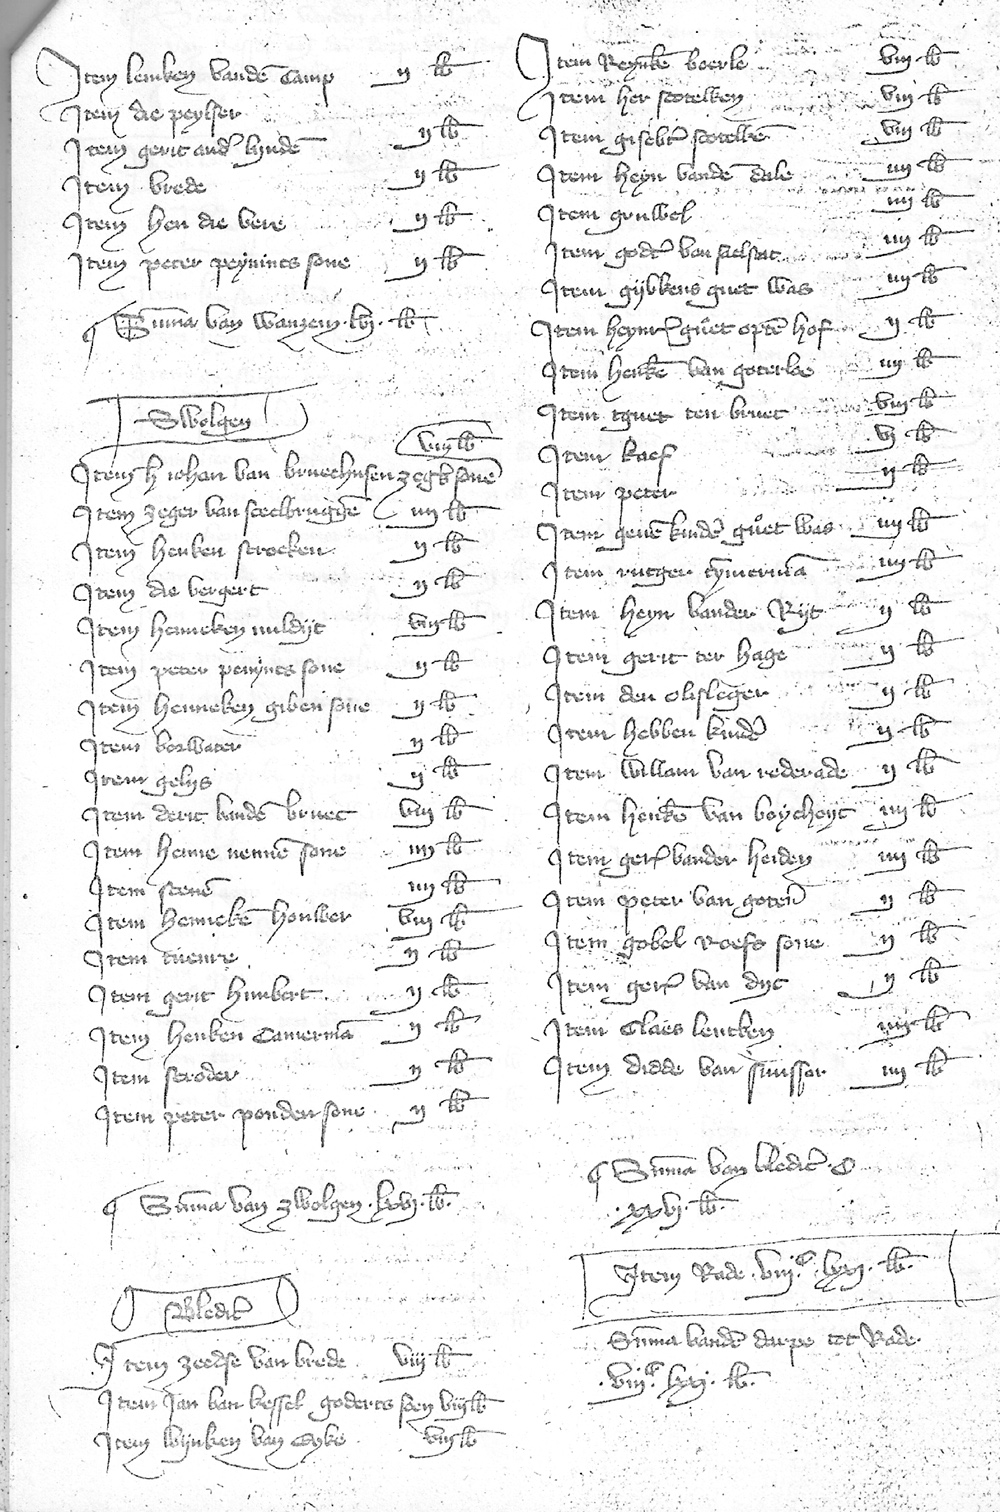 Item lemken vanden Camp ij lb
Item die peylser
Item gerit and' lynden ij lb
Item brede ij lb
Item hen die bere ij lb
Item peter peynincs sone ij lb
Summa van wanzem lvj lb
Swolgen
viij lb
Item h johan van bruechusen zegers sone
Item zeger van steelbruggen iiij lb
Item henken strocken ij lb
Item die bergert ij lb
Item henneken muldijc viij lb
Item peter penyncs sone ij lb
Item henneken giben sone ij lb
Item borwater ij lb
Item gelijs ij lb
Item derit vanden bruec viij lb
Item henne nennen sone iiij lb
Item steuen iiij lb
Item henneken houwer viij lb
Item ij lb
Item gerit humbert ij lb
Item henken Camerman ij lb
Item scroder ij lb
Item peter ponden sone ij lb
Summa van zwolgen lxvj lb
Bledic
Item zeedse van brede viij lb
Item Jan van kessel goderts soen viij lb
Item wijnken van Dyke viij lb
Item Reynken boerle viij lb
Item her scotelken viij lb
Item gisebert scotelken viij lb
Item heyn vanden dale iiij lb
Item gruwel iiij lb
Item godert van iiij lb
Item gybkens guet was iiij lb
Item heynric guet opten hof ij lb
Item henken van goterloe iiij lb
Item tguet ten bruec viij lb
Item kaef vj lb
Item peter ij lb
Item geuen kinder guet was iiij lb
Item rutger tymerman iiij lb
Item heyn vander Rijt ij lb
Item gerit ter hage ij lb
Item den olisleger ij lb
Item hebben kinder ij lb
Item willam van rederade ij lb
Item henken van boycheyt iiij lb
Item ger' vander heiden iiij lb
Item peter van goten ij lb
Item gobel Roefs sone ij lb
Item ger' van dijc ij lb
Item Claes lentken iiij lb
Item didde van iiij lb
Summa van bledic C
xxvj lb
Item Rade viijC lxxj lb
Summa vanden darpe tot Rade
viijC lxxj lb